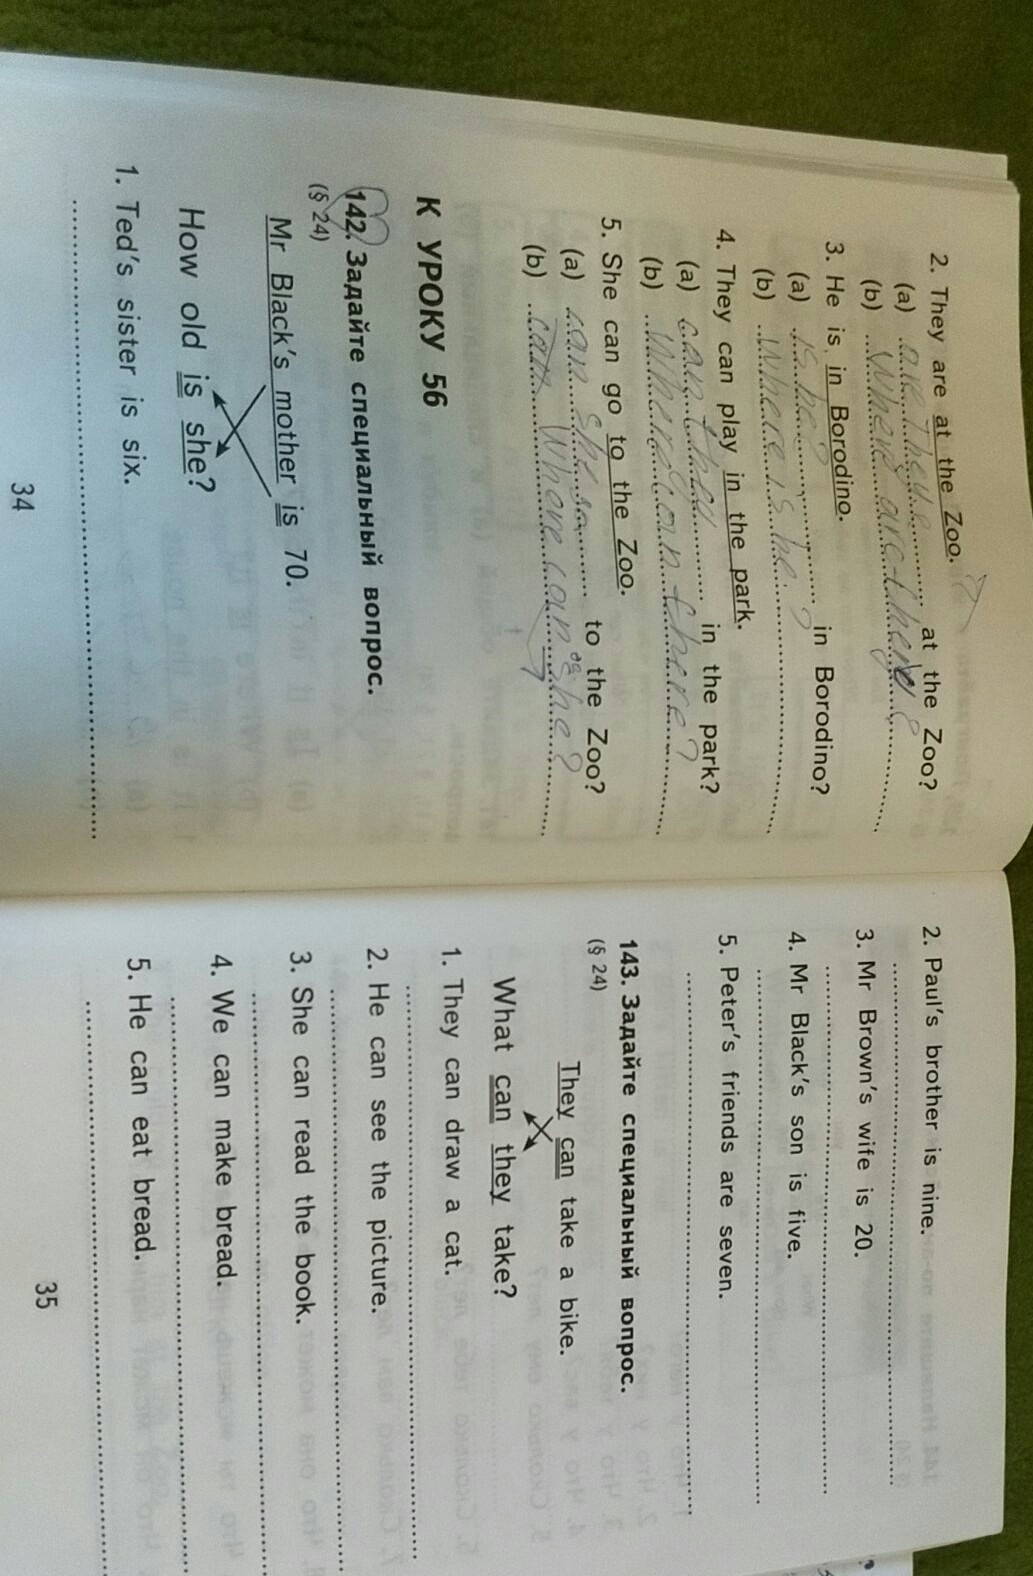 2. They are at the Zoo.
(a) are they at the Zoo?
(b) Where are they?
3. He is in Borodino.
(a) is he? in Borodino?
(b) Where is he?
4. They can play in the park.
(a) can they in the park?
(b) Where can there?
5. She can go to the Zoo.
(a) can she go to the Zoo?
(b) can Where can she?
go
К УРОКУ 56
142. Задайте специальный вопрос.
(§ 24)
Mr Black's mother is 70.
How old is she?
1. Ted's sister is six.
34
2. Paul's brother is nine.
3. Mr Brown's wife is 20.
4. Mr Black's son is five.
5. Peter's friends are seven.
143. Задайте специальный вопрос.
(§ 24)
They can take a bike.
What can they take?
1. They can draw a cat.
2. He can see the picture.
3. She can read the book.
4. We can make bread.
5. He can eat bread.
35